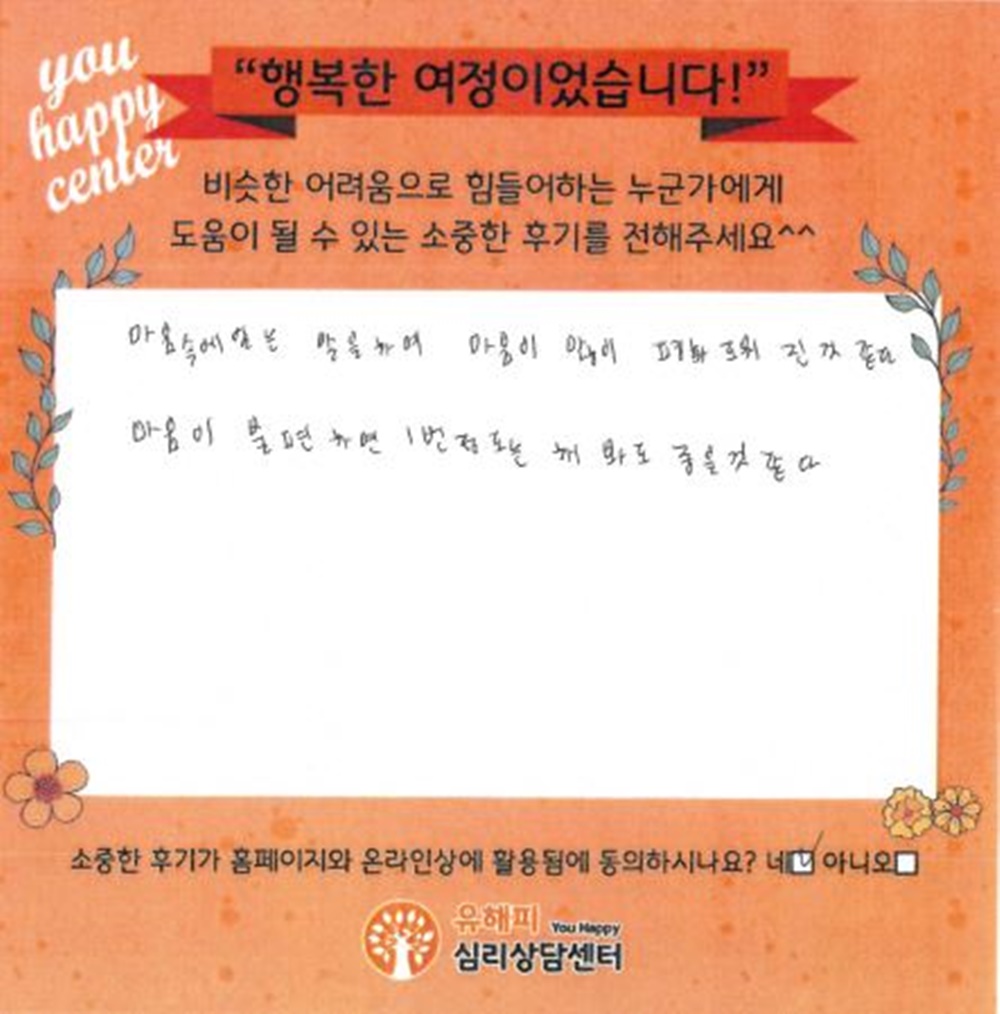 you
happy
center
“행복한 여정이었습니다!”
비슷한 어려움으로 힘들어하는 누군가에게
도움이 될 수 있는 소중한 후기를 전해주세요^^
마음속에 있는 말을 하여 마음이 많이 평화로워 진 것 같다
마음이 불편하면 1번 정도는 해 봐도 좋을것 같다
소중한 후기가 홈페이지와 온라인상에 활용됨에 동의하시나요? 네 아니오
유해피 You Happy
심리상담센터